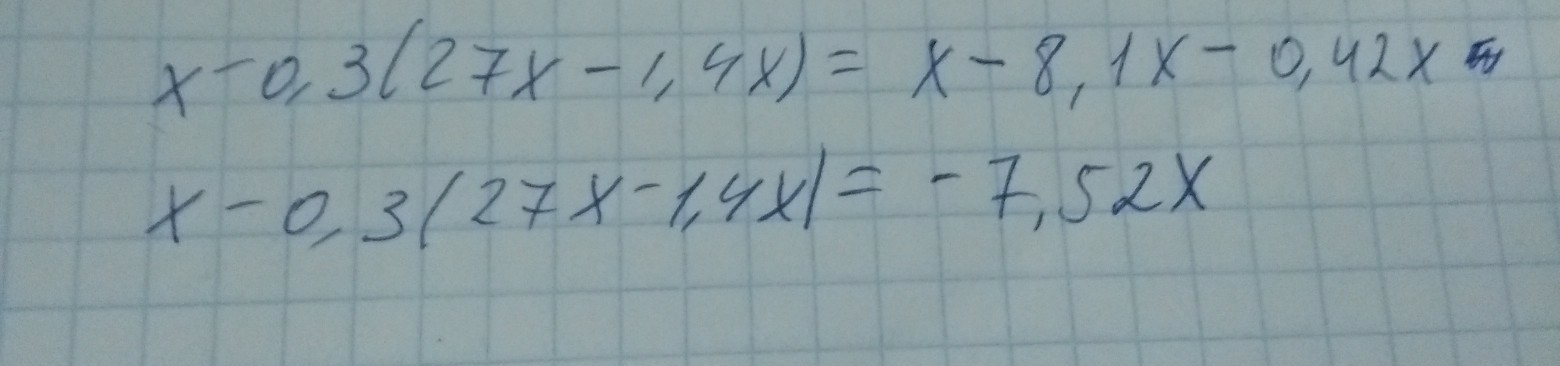 x-0,3(27x-1,4x)= x-8,1x-0,42x
x-0,3(27x-1,4x)= -7,52x